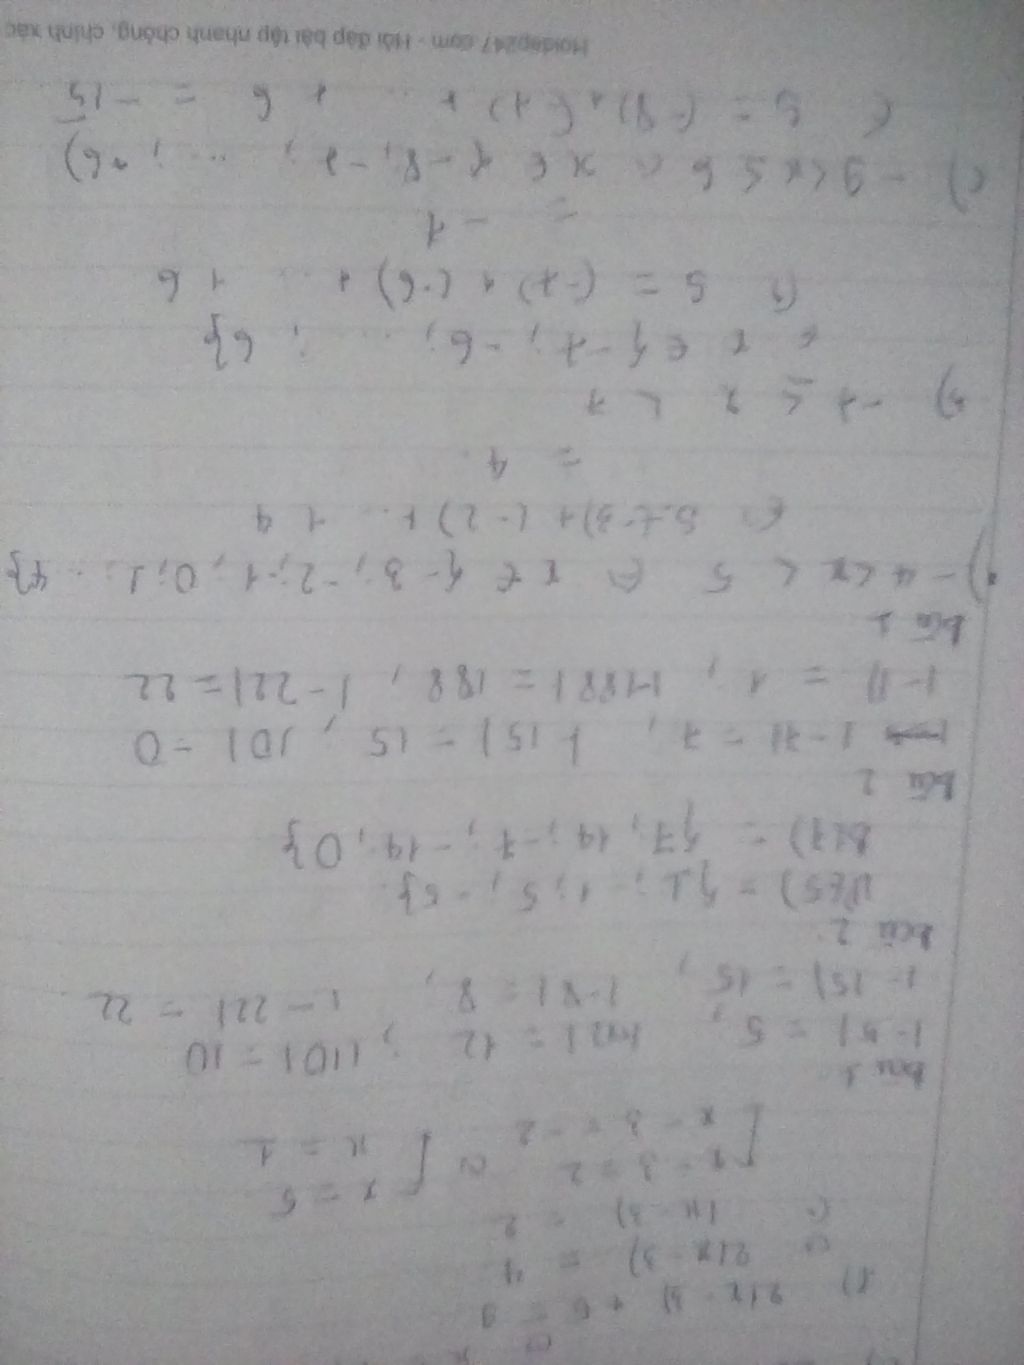 2|x-3| + 5 = 9
2|x-3| = 4
|x-3| = 2
x-3=2
x-3=-2
x=5
x=1
bài 1
|-5| = 5, |12| = 12, |10| = 10
|-15| = 15, |-8| = 8, |-22| = 22
bài 2
Ư(5) = {1; -1; 5; -5}
B(7) = {7; 14; -7; -14; 0}
bài 2
|-7| = 7, |-15| = 15, |0| = 0
|-1| = 1, |-188| = 188, |-22| = 22
bài 1
a) -4 < x < 5 x ∈ {-3; -2; -1; 0; 1; ... 4}
S = (-3) + (-2) + ... + 4
= 4
b) -7 ≤ x < 7
x ∈ {-7; -6; ...; 6}
S = (-7) + (-6) + ... + 6
= -7
c) -9 < x ≤ 6 x ∈ {-8; -7; ...; 6}
S = (-8) + (-7) + ... + 6 = -15
Hoidap247.com - Hỏi đáp bài tập nhanh chóng, chính xác